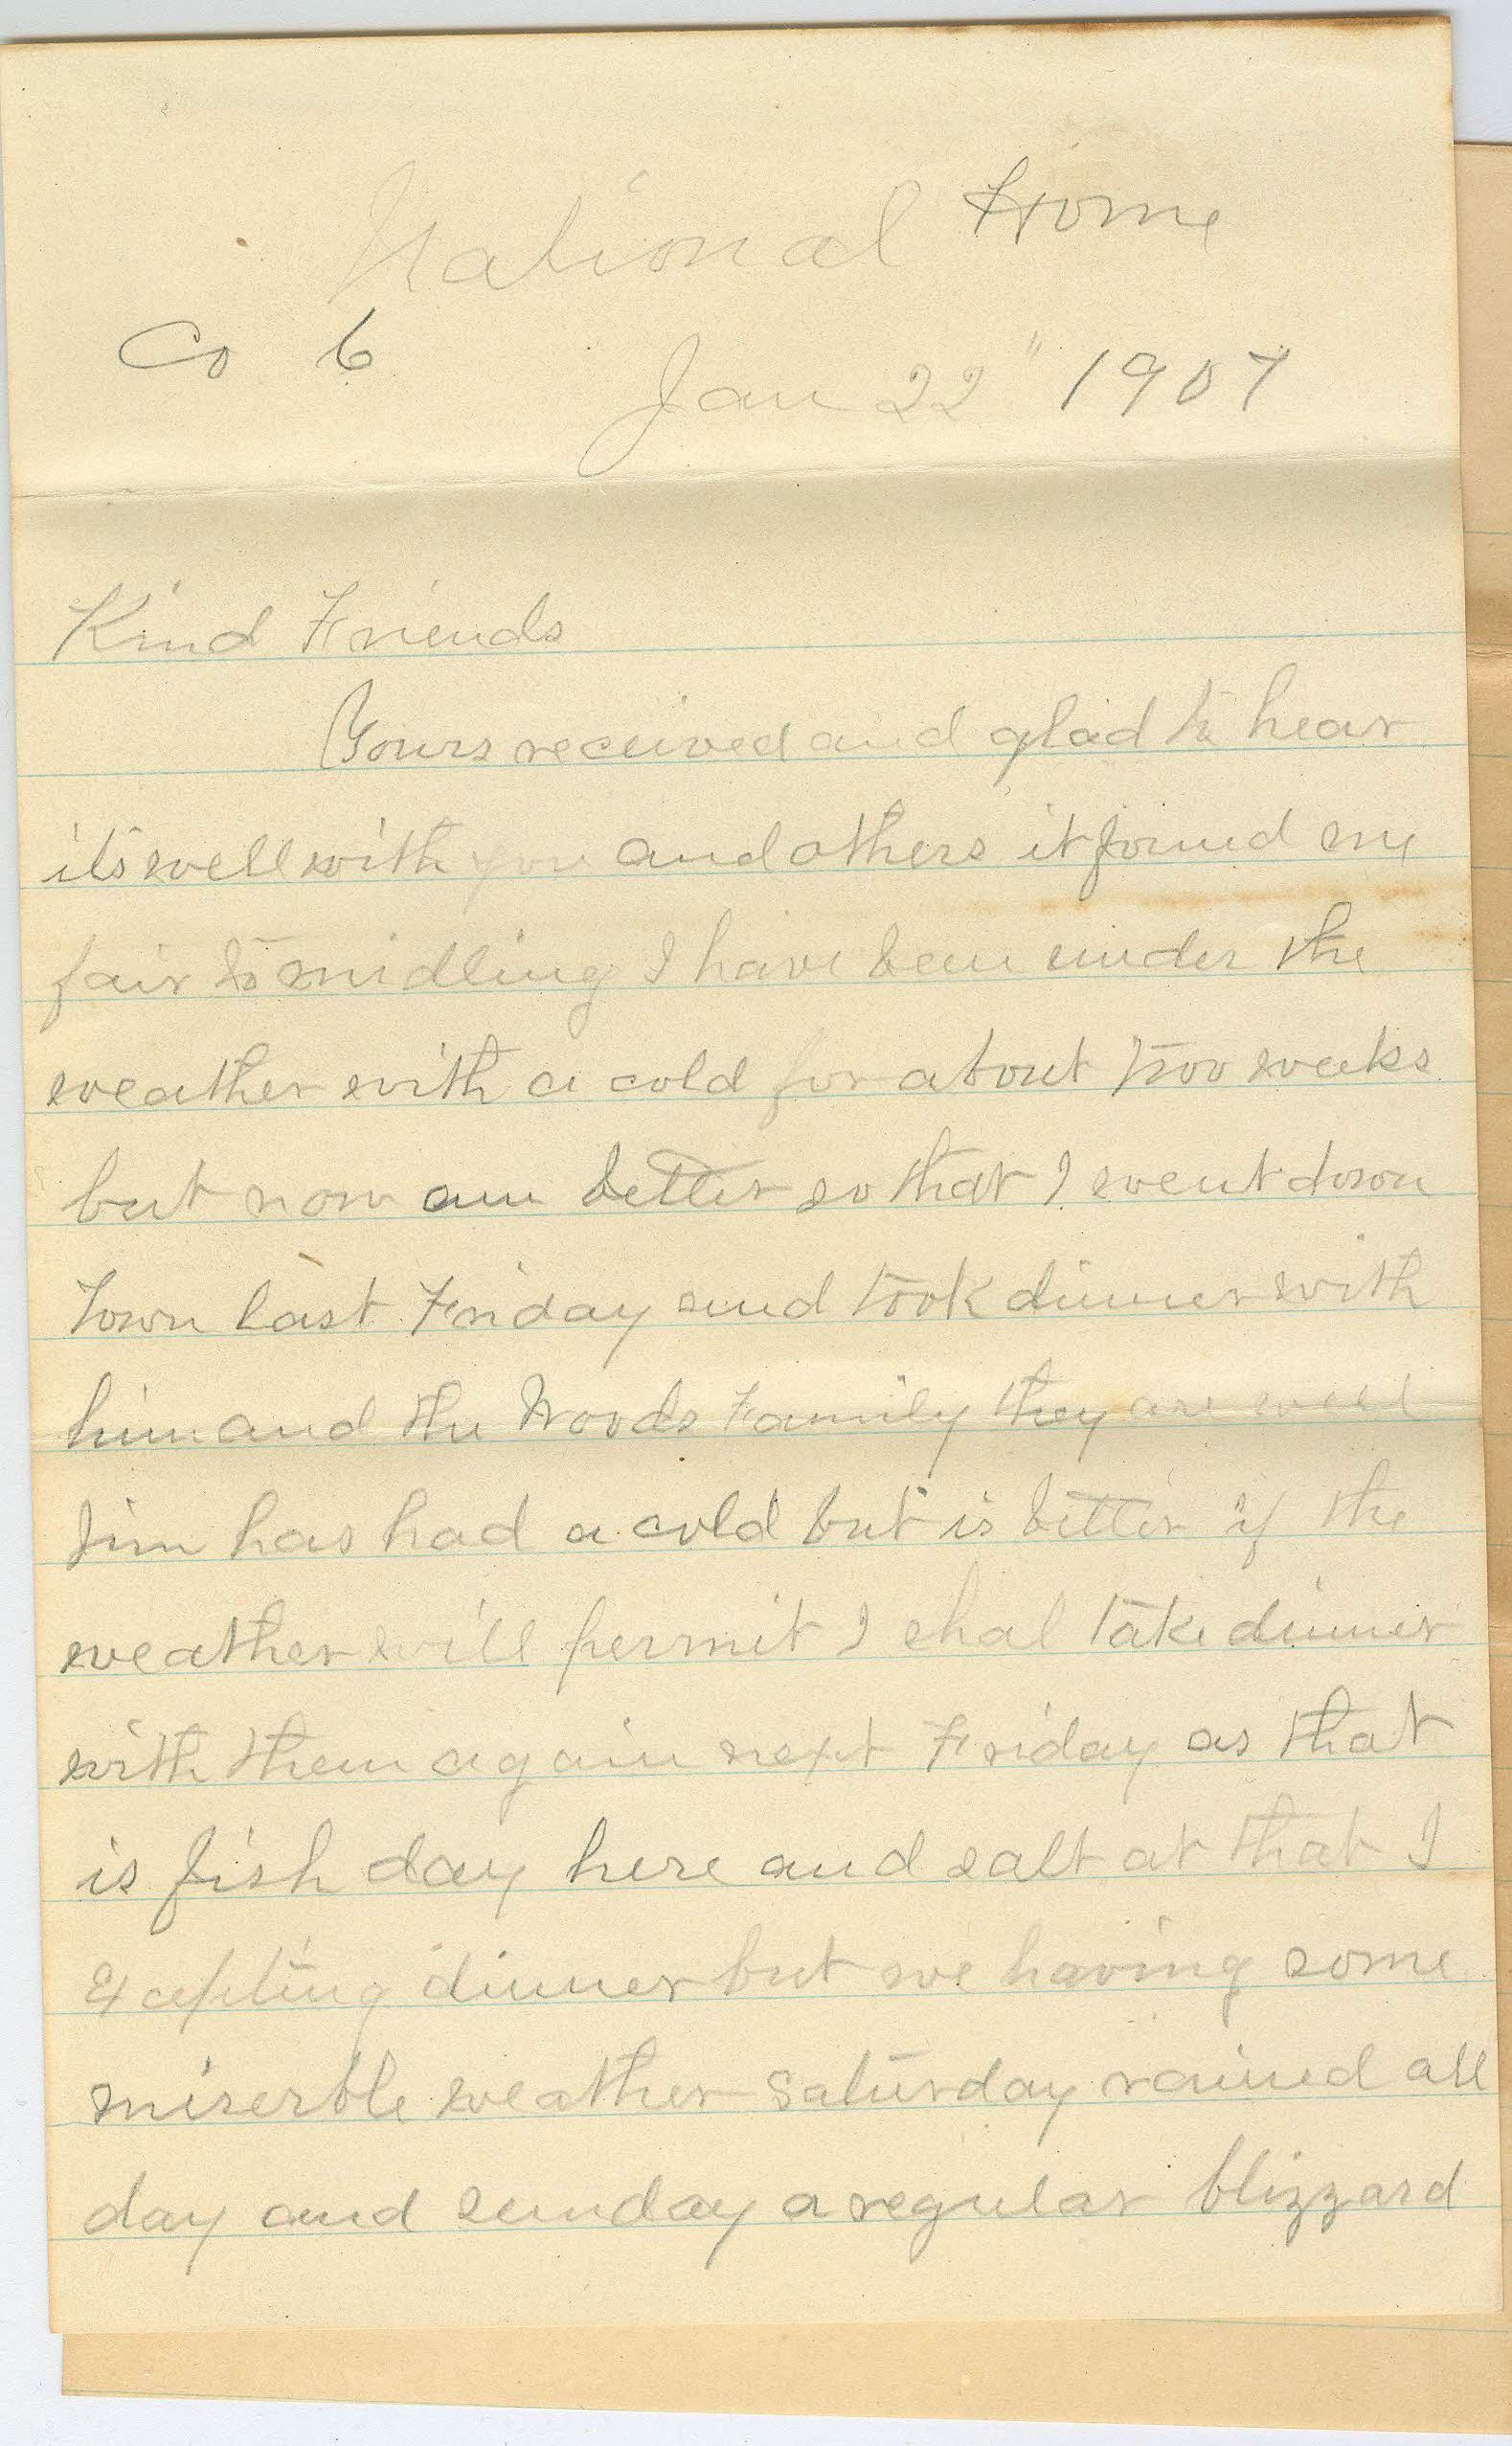 National Home
Co 6 Jan 22" 1907
Kind Friends
Yours received and glad to hear
its well with you and others it found me
fair to midling I have been under the
weather with a cold for about two weeks
but now am better so that I went down
Town last Friday and took dinner with
him and the Woods Family they are well
Jim has had a cold but is better if the
weather will permit I shal take dinner
with them again next Friday as that
is fish day here and salt at that I
Excepting dinner but we having some
miserble weather Saturday rained all
day and sunday a regular blizzard